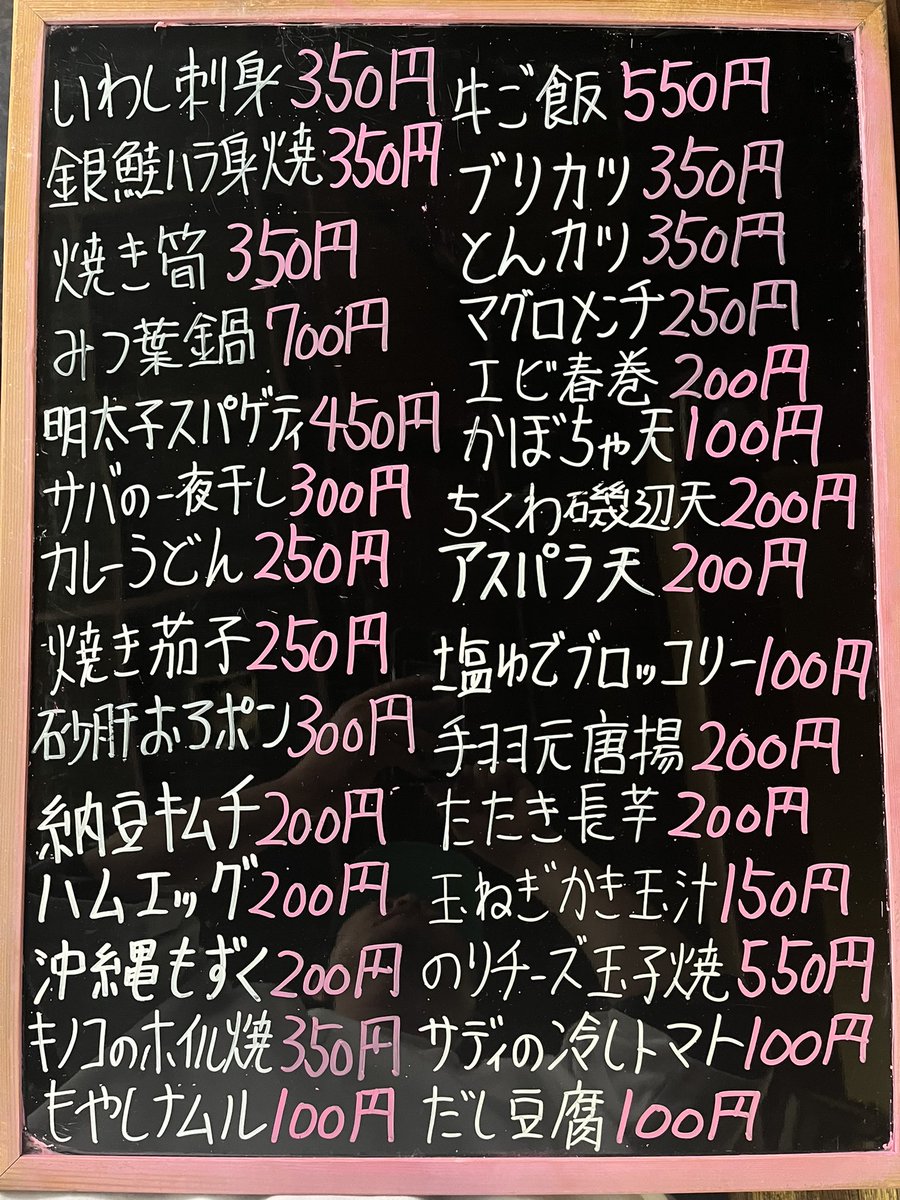 いわし刺身 350円
銀鮭ハラ身焼 350円
焼き筒 350円
みつ葉鍋 700円
明太子スパゲティ 450円
サバの一夜干し 300円
カレーうどん 250円
焼き茄子 250円
砂肝おろポン 300円
納豆キムチ 200円
ハムエッグ 200円
沖縄もずく 200円
キノコのホイル焼 350円
もやしナムル 100円
牛ご飯 550円
ブリカツ 350円
とんカツ 350円
マグロメンチ 250円
エビ春巻 200円
かぼちゃ天 100円
ちくわ磯辺天 200円
アスパラ天 200円
塩ゆでブロッコリー 100円
手羽元唐揚 200円
たたき長芋 200円
玉ねぎかき玉汁 150円
のりチーズ玉子焼 550円
サディの冷しトマト 100円
だし豆腐 100円